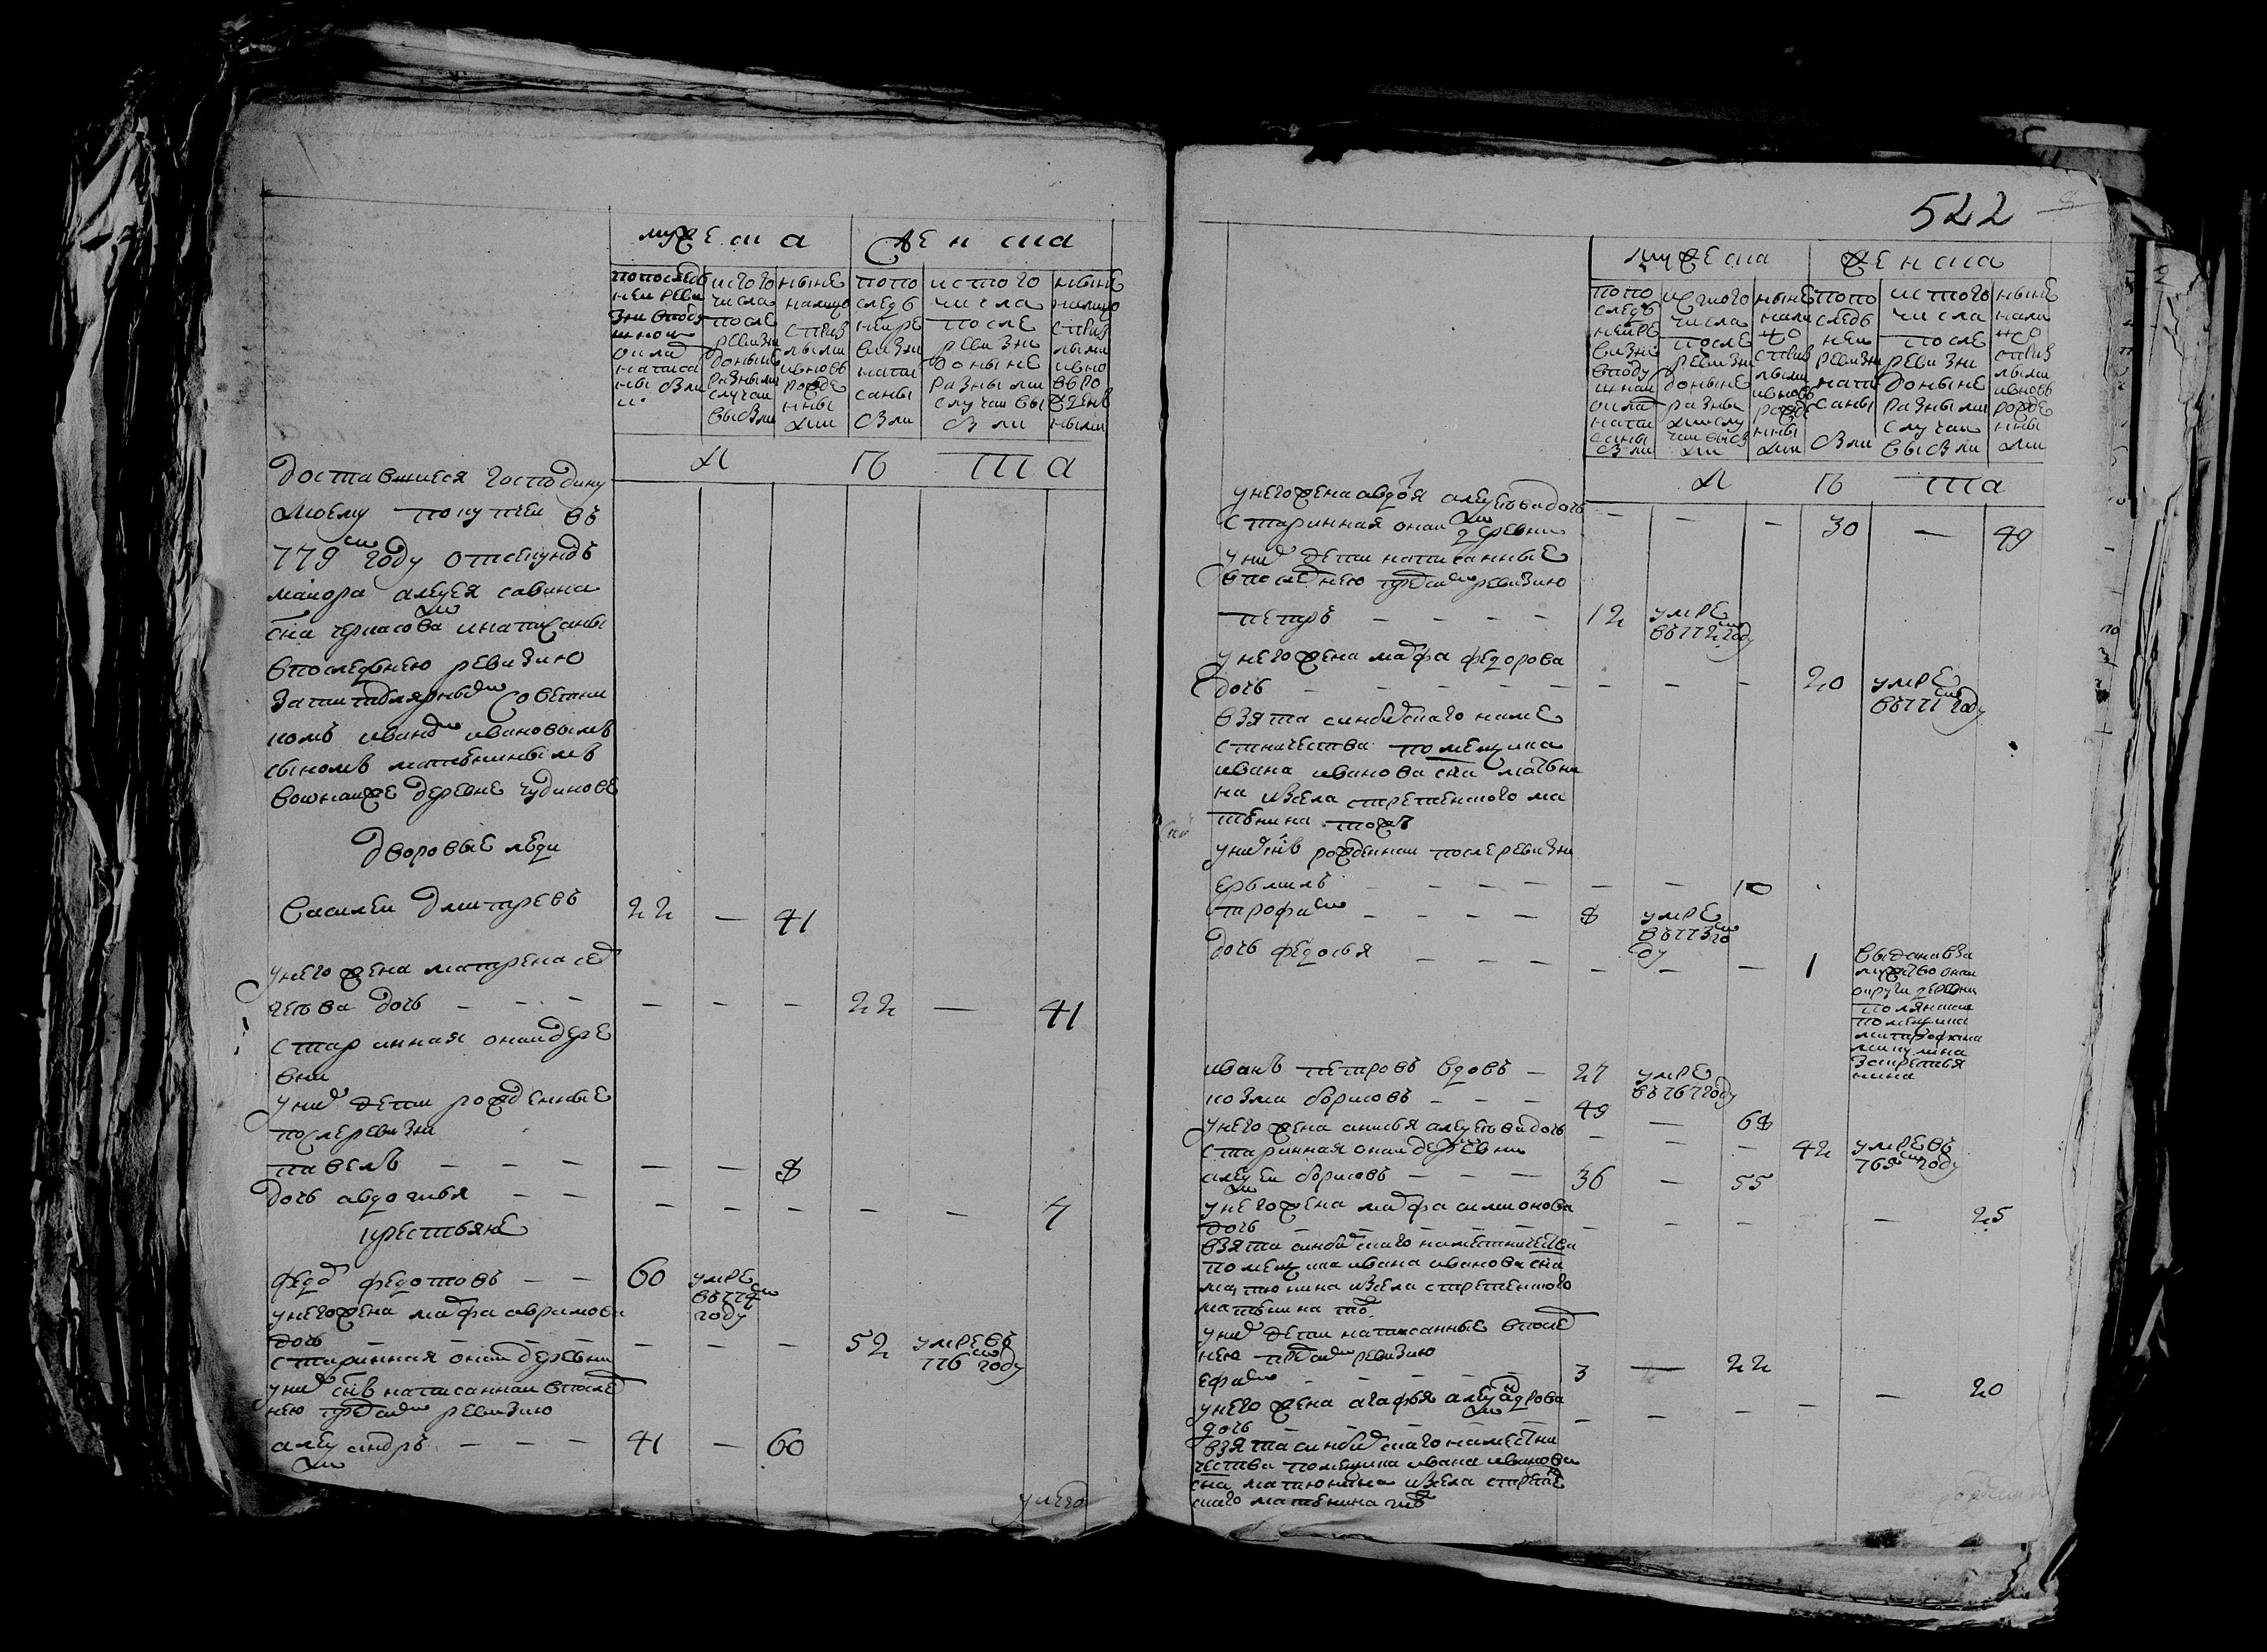 мужеска
женска
попоследъ
неи реви
зии вподу
шнои
окла
написа
ны были
исътого
числа
после
ревизии
доныне
разными
случаи
выбыли
ныне
налицо
сприб
лыми
ивновь
рожде
нны
ми
попо
следъ
неире
визии
напи
саны
были
истого
числа
после
ревизии
доныне
разными
случаи вы
были
ныне
налицо
сприб
лыми
ивно
вро
жден
ными
л п та
доставшиеся господину
моему покупкеи въ
779м году отсекундъ
маиора алексея савина
сна черкасова инаписаны
впоследънею ревизию
затитулярнымъ советни
комъ иваномъ ивановымъ
сыномъ матюнинымъ
вошнаиже деревне чудинове
дворовые люди
василеи дмитревъ 22 — 41
унего жена матрена сед
чева дочь — — — — — — 22 — 41
старинная онаидере
вни
унихъ дети рожденные
послеревизии
павелъ — — — — — 8
дочь авдотья — — — — — — — 7
крестьяне
федоръ федотовъ — — 60 умре
въ774м
году
унегожена марфа аврамова
дочь — — — — — — — 52 умревъ
776м году
старинная онаи деревни
унихъ снъ написаннаи впослед
нею предъсимъ ревизию
александръ — — — 41 — 60
унего
522
мужеска
женска
попо
следъ
неире
визие
вподу
шнаи
оклад
напи
саны
были
исътого
числа
после
ревизии
доныне
разны
мислу
чаи выбы
ли
ныне
нали
цо
сприб
лыми
ивновь
рожде
нны
ми
попо
следъ
неи
ревизии
напи
саны
были
истого
числа
после
ревизии
доныне
разными
случаи
выбыли
ныне
нали
цо
сприб
лыми
ивновь
рожде
нны
ми
л п та
унегожена авдотя алексеевадочь
старинная онаи деревни — — — 30 — 49
унихъ дети написанные
впоследнею предсимъ ревизию
петръ — — — — 12 умре
въ772мгоду
унегожена марфа федорова
дочь — — — — — — — — — 20 умре
въ771мгоду
взята синбирскаго наме
стничества помещика
ивана иванова сна матюни
на изсела стретенского ма
тюнина тожъ
унихъ снъ рожденнаи послеревизии
ермилъ — — — — — 10
трофимъ — — — — 8 умре
въ773мго
ду
дочь федосья — — — — — — — 1 выданавза
мужство онаи
округи деревни
помещика
митрофана
микулина
закрестья
нина
иванъ петровъ вдовъ — 27 умре
въ767году
козма борисовъ — — — 49 — 68
унего жена анисья алексеевадочь — — — 42 умревъ
765мгоду
старинная онаи деревни
алексеи борисовъ — — — 36 — 55
унегожена марфа симионова
дочь — — — — — — — — — 25
взята синбирскаго наместничества
помещика ивана иванова сна
матюнина изсела стретенского
матюнина тожъ
унихъ дети написанные впослед
нею предсимъ ревизию
ефимъ — — — — — 3 — 22
унего жена агафья александрова
дочь — — — — — — — — — 20
взята синбирскаго наместни
чества помещика ивана иванова
сна матюнина изсела стретен
скаго матюнина тожъ